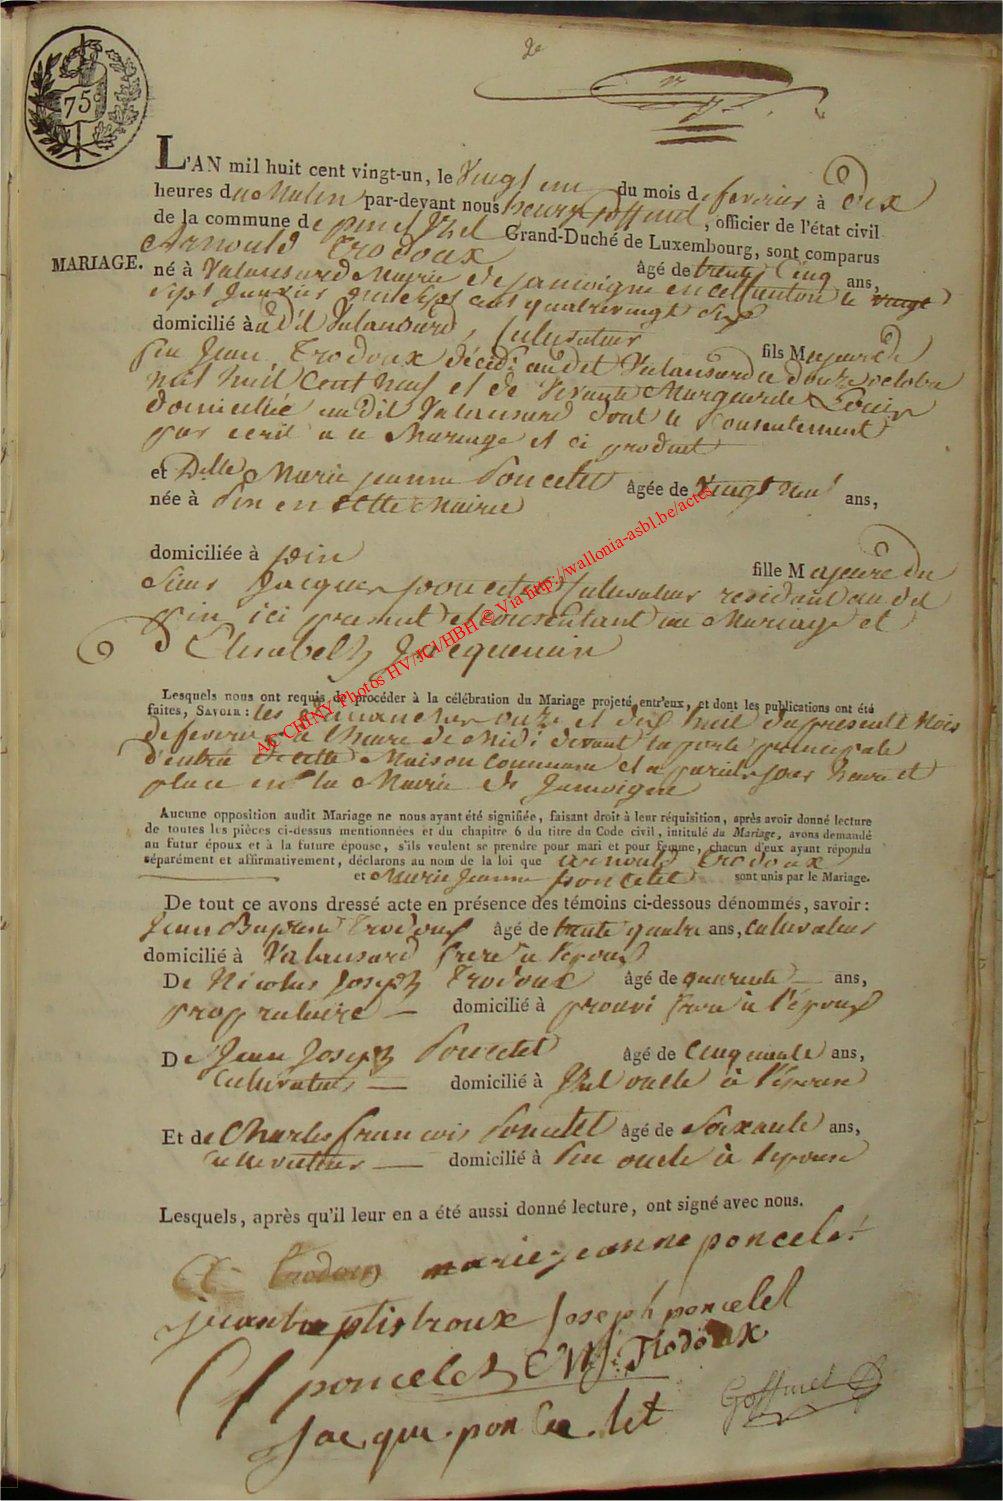 2e
75c
L'AN mil huit cent vingt-un, le Vingt un du mois de fevrier à Dix
heures du Matin par-devant nous henry Goffinet, officier de l'état civil
de la commune de pin et Izel Grand-Duché de Luxembourg, sont comparus
MARIAGE.
Arnould Trodoux âgé de trente Cinq ans,
né à Valansard Mairie de jamoigne en ce Canton le vingt
Sept Janvier mil sept cent quatre vingt Six
domicilié à u dit Valansard, Cultivateur fils Majeur de
feu Jean Trodoux décédé au dit Valansard le douze octobre
mil huit Cent neuf et de Vivante Marguerite Louis
domiciliée au dit Valansard dont le Consentement
par ecrit a ce Mariage et ci produit
et Delle Marie jeanne Poncelet âgée de Vingt neuf ans,
née à Pin en Cette Mairie
domiciliée à pin fille Majeure du
Sieur Jacques poncelet Cultivateur residant au dit
pin ici present et Consentant au Mariage et
d'Elisabeth Jacquemin
Lesquels nous ont requis de procéder à la célébration du Mariage projeté entr'eux, et dont les publications ont été
faites, SAVOIR : les dimanches onze et dix huit du present Mois
de fevrier a l'heure de Midi devant la porte principale
d'entrée de cette Maison Commune et a pareils jour heure et
place en la Mairie de Jamoigne
Aucune opposition audit Mariage ne nous ayant été signifiée, faisant droit à leur réquisition, après avoir donné lecture
de toutes les pièces ci-dessus mentionnées et du chapitre 6 du titre du Code civil, intitulé du Mariage, avons demandé
au futur époux et à la future épouse, s'ils veulent se prendre pour mari et pour femme, chacun d'eux ayant répondu
séparément et affirmativement, déclarons au nom de la loi que arnould Trodoux
et Marie Jeanne poncelet sont unis par le Mariage.
De tout ce avons dressé acte en présence des témoins ci-dessous dénommés, savoir :
Jean Baptiste Trodoux âgé de trente quatre ans, Cultivateur
domicilié à Valansard frere a l'epoux
De Nicolas Joseph Trodoux âgé de quarente ans,
proprietaire domicilié à prouvi frere à l'époux
De Jean Joseph Poncelet âgé de Cinquante ans,
Cultivateur domicilié à Izel oncle à l'épouse
Et de Charles francois Poncelet âgé de Soixante ans,
Cultivateur domicilié à Pin oncle à l'epouse
Lesquels, après qu'il leur en a été aussi donné lecture, ont signé avec nous.
A Trodoux marie jeanne poncelet
jean baptis troux Joseph poncelet
C f poncelet NJ: Trodoux
Jacque poncelet Goffinet
AC CHINY Photos HV/JCJ/HBH © Via http://wallonia-asbl.be/actes